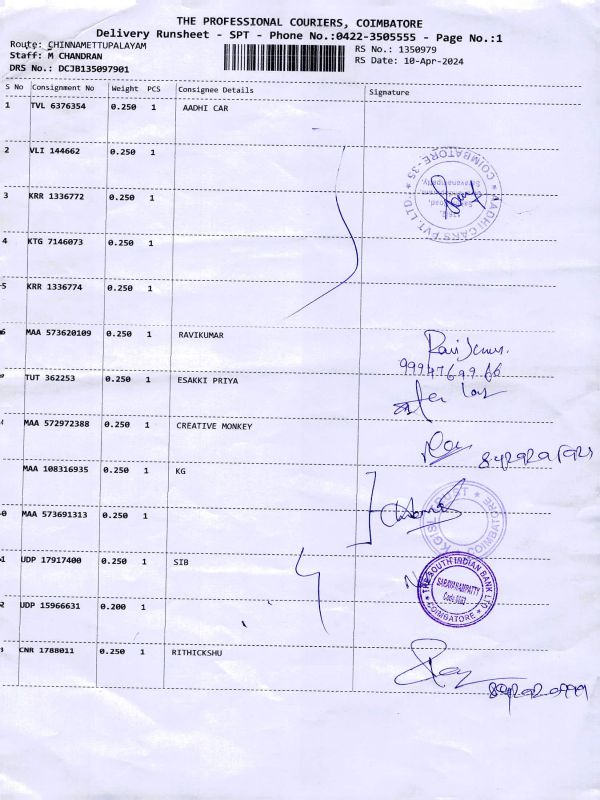 THE PROFESSIONAL COURIERS, COIMBATORE
Delivery Runsheet - SPT - Phone No.:0422-3505555 - Page No.:1
Route: CHINNAMETTUPALAYAM
RS No.: 1350979
Staff: M CHANDRAN
RS Date: 10-Apr-2024
DRS No.: DCJB135097901
S No Consignment No Weight PCS Consignee Details Signature
1 TVL 6376354 0.250 1 AADHI CAR
2 VLI 144662 0.250 1
AADHI CARS PVT. LTD. * COIMBATORE-35 *
3 KRR 1336772 0.250 1
4 KTG 7146073 0.250 1
5 KRR 1336774 0.250 1
6 MAA 573620109 0.250 1 RAVIKUMAR
TUT 362253 0.250 1 ESAKKI PRIYA
MAA 572972388 0.250 1 CREATIVE MONKEY
MAA 108316935 0.250 1 KG
0 MAA 573691313 0.250 1
COIMBATORE
1 UDP 17917400 0.250 1 SIB
* THE SOUTH INDIAN BANK LTD * COIMBATORE
SARAVANAMPATTY
2 UDP 15966631 0.200 1
CNR 1788011 0.250 1 RITHICKSHU